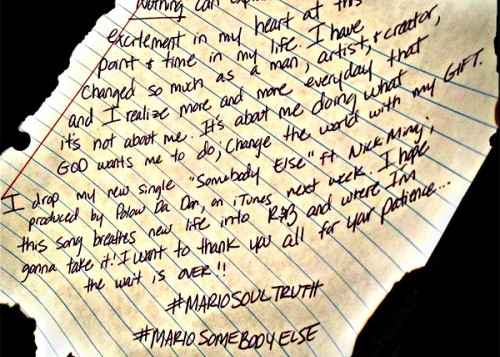 Nothing can
excitement in my heart at this
point & time in my life. I have
changed so much as a man, artist, & creator,
and I realize more and more everyday that
it's not about me. It's about me doing what
GOD wants me to do; Change the world with my GIFT.
I drop my new single "Somebody Else" ft Nicki Minaj;
produced by Polow Da Don, on iTunes next week. I hope
this song breathes new life into R&B and where I'm
gonna take it! I want to thank you all for your patience...
the wait is OVER!!
#MARIOSOULTRUTH
#MARIOSOMEBODYELSE